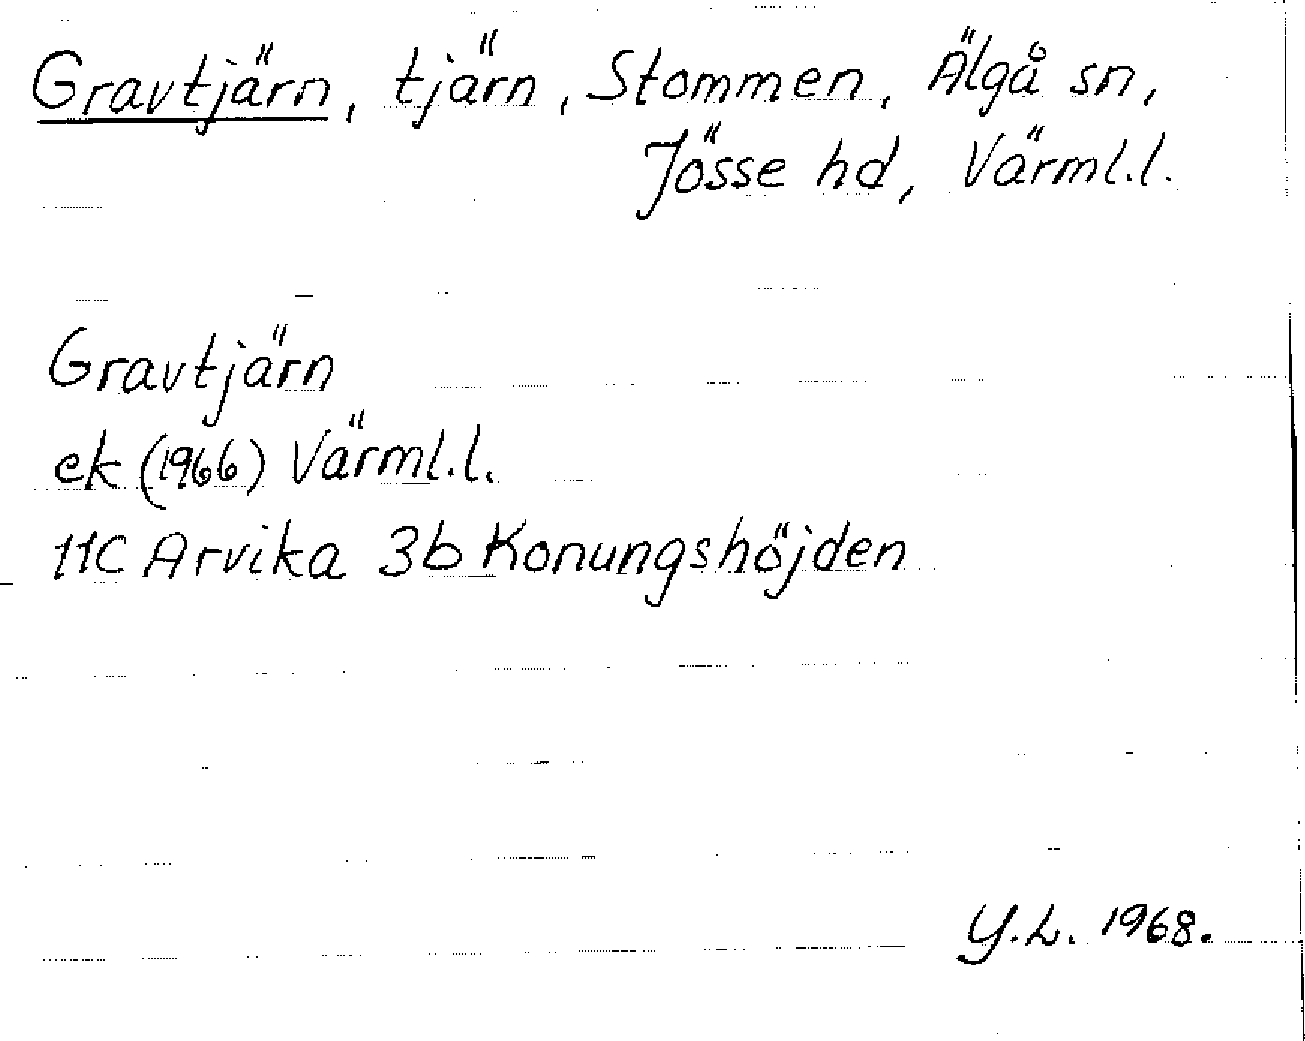 Gravtjärn, tjärn, Stommen, Älgå sn,
Jösse hd, Värml.l.
Gravtjärn
ek (1966) Värml.l.
11C Arvika 3b Konungshöjden
Y.L. 1968.